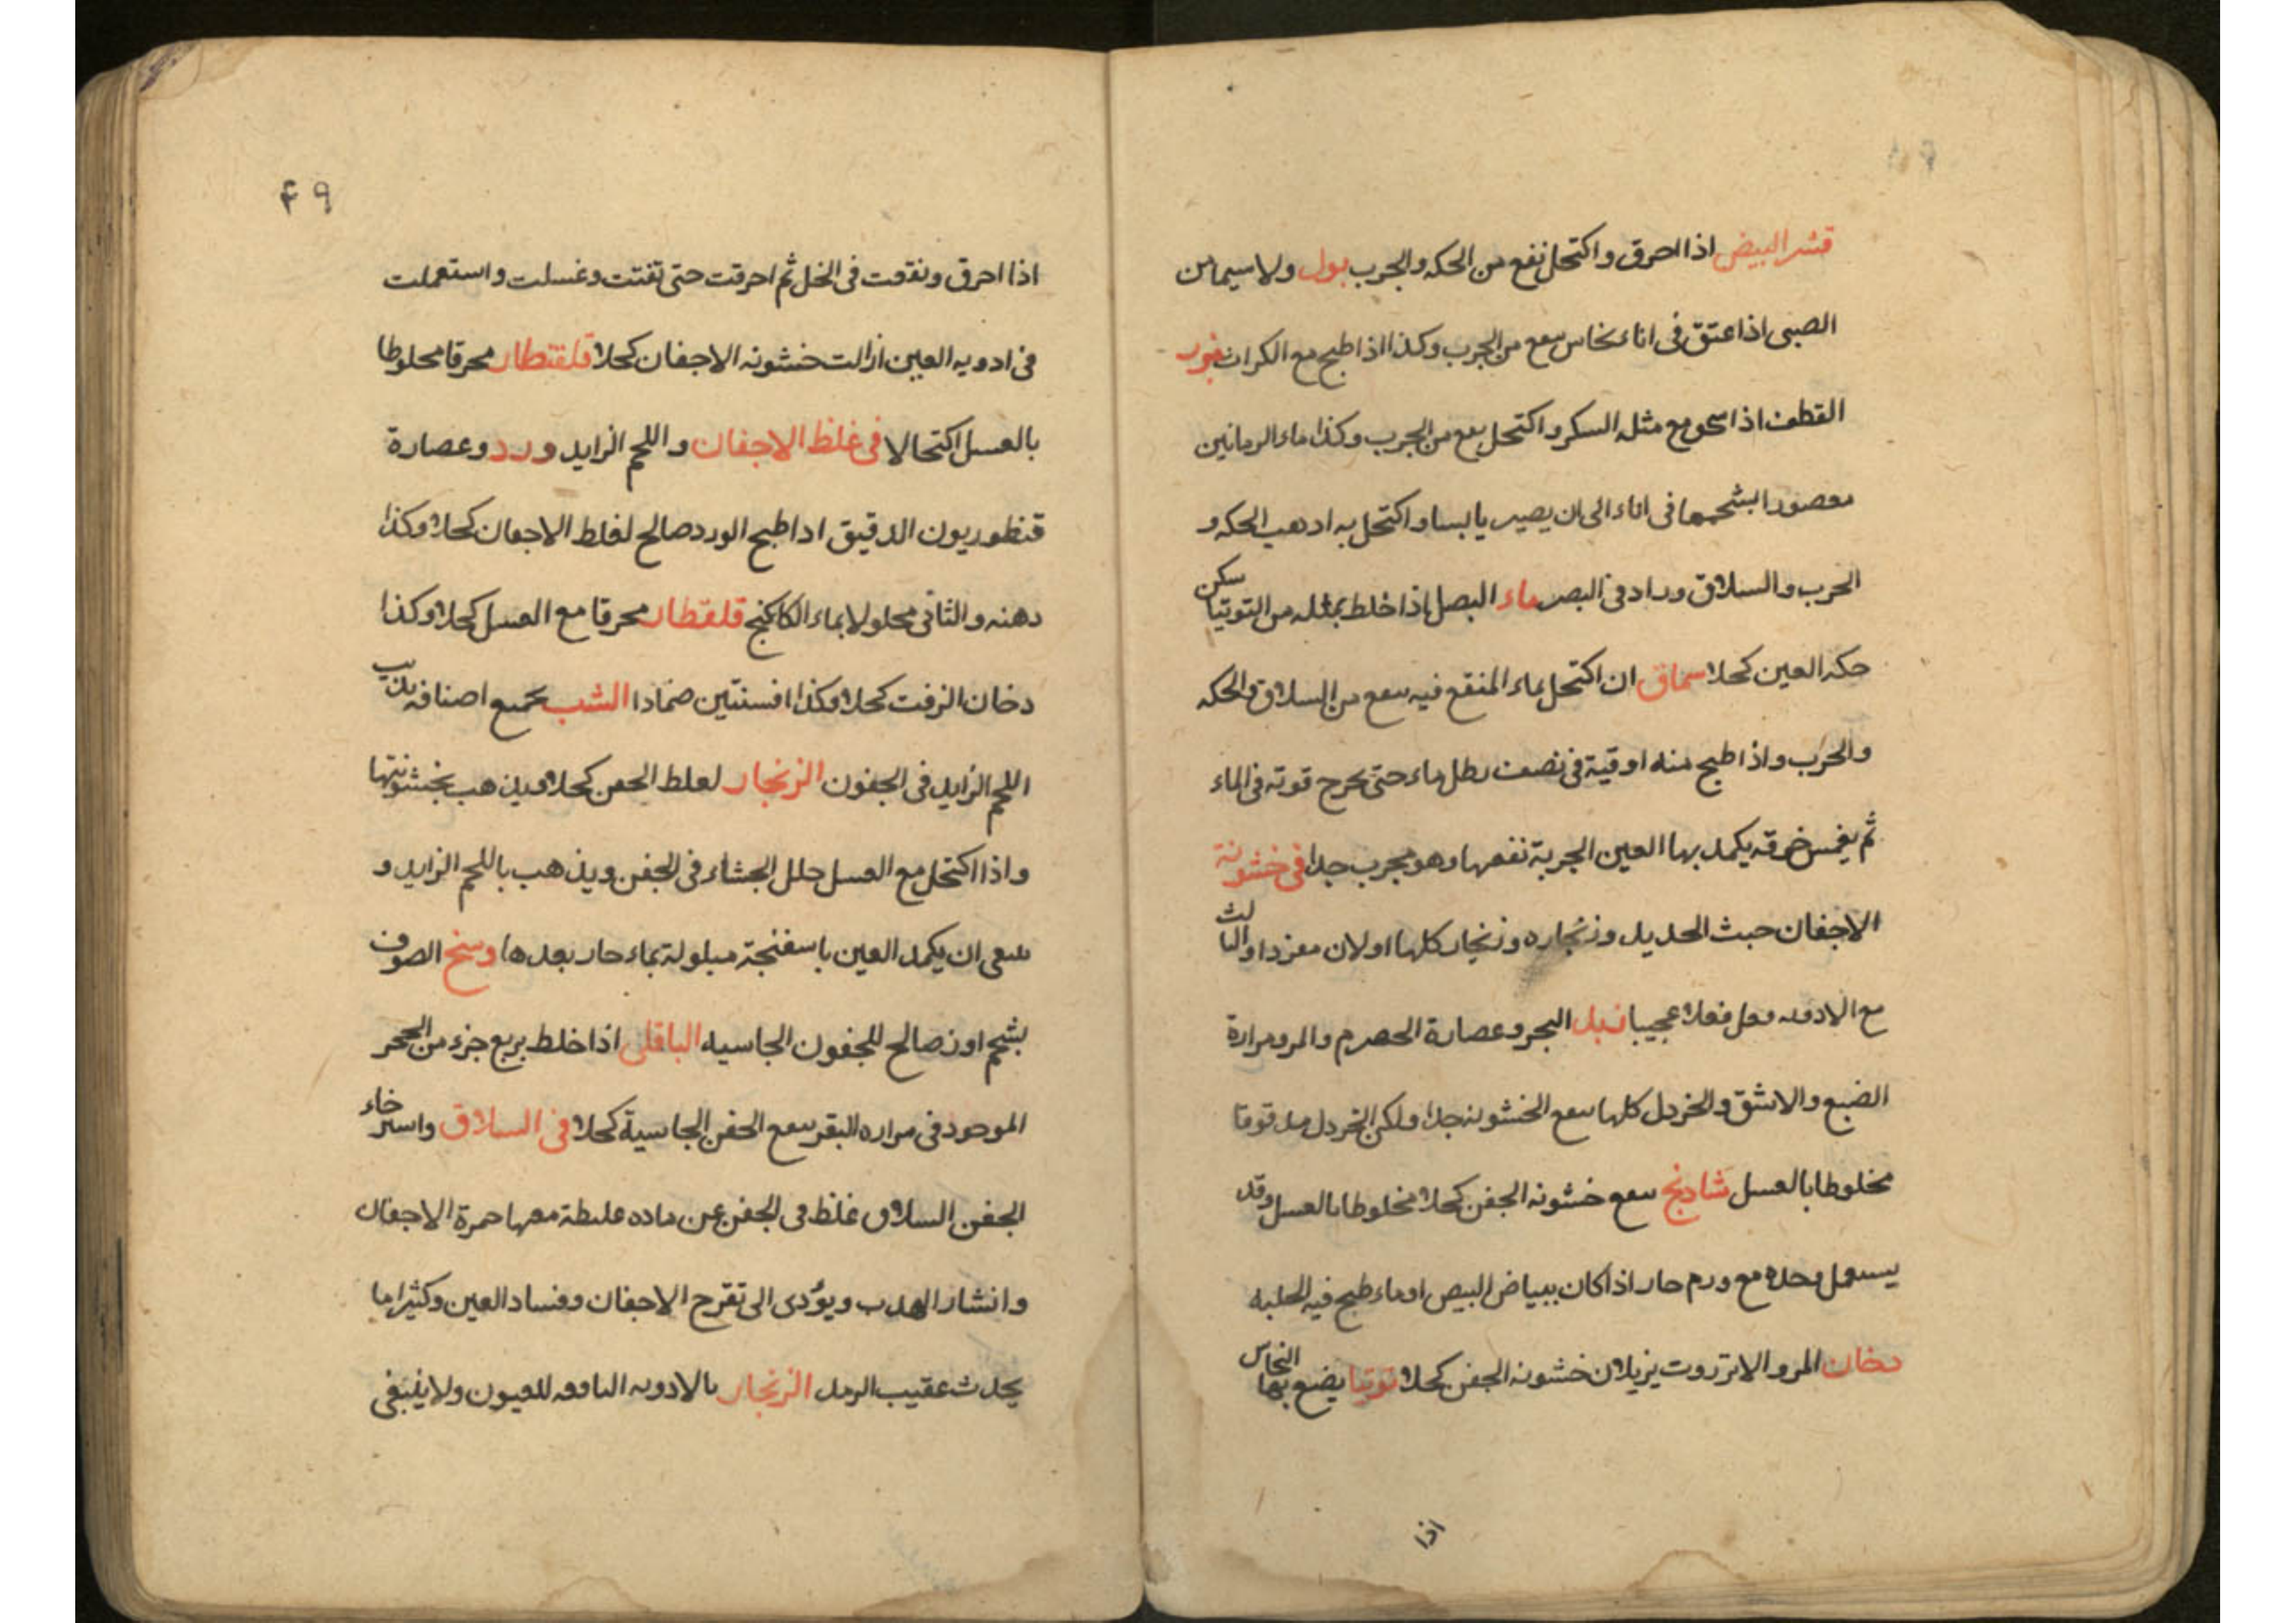 قشر البيض اذا احرق واكتحل نفع من الحكه والجرب بول ولا سيما من
الصبى اذا عتق فى اناء نحاس سعع من الجرب وكذا اذا طبح مع الكراث
القطف اذا سحق مع مثله السكر واكتحل سعع من الجرب وكذا ماء الرمانين
معصورا بشحمها فى اناء الى ان يصير يابسا واكتحل به ادهب الحكه و
الحرب والسلاق وزاد فى البصر ماء البصل اذا خلط بمثله من التوتيا سكن
حكه العين كحلا سماق ان اكتحل بماء المنقع فيه سعع من السلاق والحكه
والحرب واذا طبح منه اوقية فى نصف رطل ماء حتى يحرج قوته فى الماء
ثم يغمس خرقه يكمد بها العين الجربة نفعها وهو مجرب جدا فى خشونة
الاجفان حبث الحديد وزنجاره وزنجار كلها اولان مفردا
مع الادويه فعل فعلا عجيبا البحر وعصارة الحصرم والمر ومرارة
الضبع والاشق والخردل كلها سعع الخشونه جدا ولكن الخردل مدقوقا
مخلوطا بالعسل شادنج سعع خشونه الجفن كحلا مخلوطا بالعسل وقد
يستعمل وحده مع ورم حار اذا كان ببياض البيض او ماء طبح فيه الحلبه
دخان المر والانزروت يزيلان خشونه الجفن كحلا توتيا يضع بها النحاس
اذا
٤٩
اذا احرق ونقعت فى الخل ثم احرقت حتى تفتت وغسلت واستعملت
فى ادويه العين ازالت خشونه الاجفان كحلا قلقطار محرقا مخلوطا
بالعسل اكتحالا فى غلظ الاجفان واللحم الزايد ورد وعصارة
قنطوريون الدقيق اذا طبح الورد صالح لغلط الاجفان كحلا وكذا
دهنه والثانى محلولا بماء الكاكنج قلقطار محرقا مع العسل كحلا وكذا
دخان الزفت كحلا وكذا افسنتين ضمادا الشب بجميع اصنافه يذيب
اللحم الزايد فى الجفون الزنجار لغلط الجفن كحلا ويذهب بخشونتها
واذا اكتحل مع العسل حلل الجشاء فى الجفن ويذهب باللحم الزايد و
ينبغى ان يكمد العين باسفنجة مبلولة بماء حار بعدها وسخ الصوف
بشحم اوز صالح للجفون الجاسيه الباقلى اذا خلط بربع جزء من الحجر
الموجود فى مراره البقر سعع الجفن الجاسية كحلا فى السلاق واسترخاء
الجفن السلاق غلظ فى الجفن عن ماده غليظة معها حمرة الاجفان
وانتشار الهدب ويؤدى الى تقرح الاجفان وفساد العين وكثيرا ما
يحدث عقيب الرمد الزنجار بالادويه النافعه للعيون ولا ينبغى